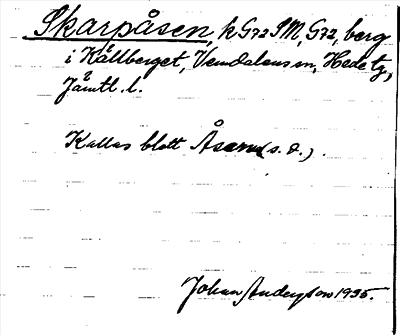 Skarpåsen, k G72 SM, G72, berg
i Kållberget, Vemdalens sn, Hede tg,
Jämtl. l.
Kallas blott Åsen (s. d.).
Johan Anderson 1935.